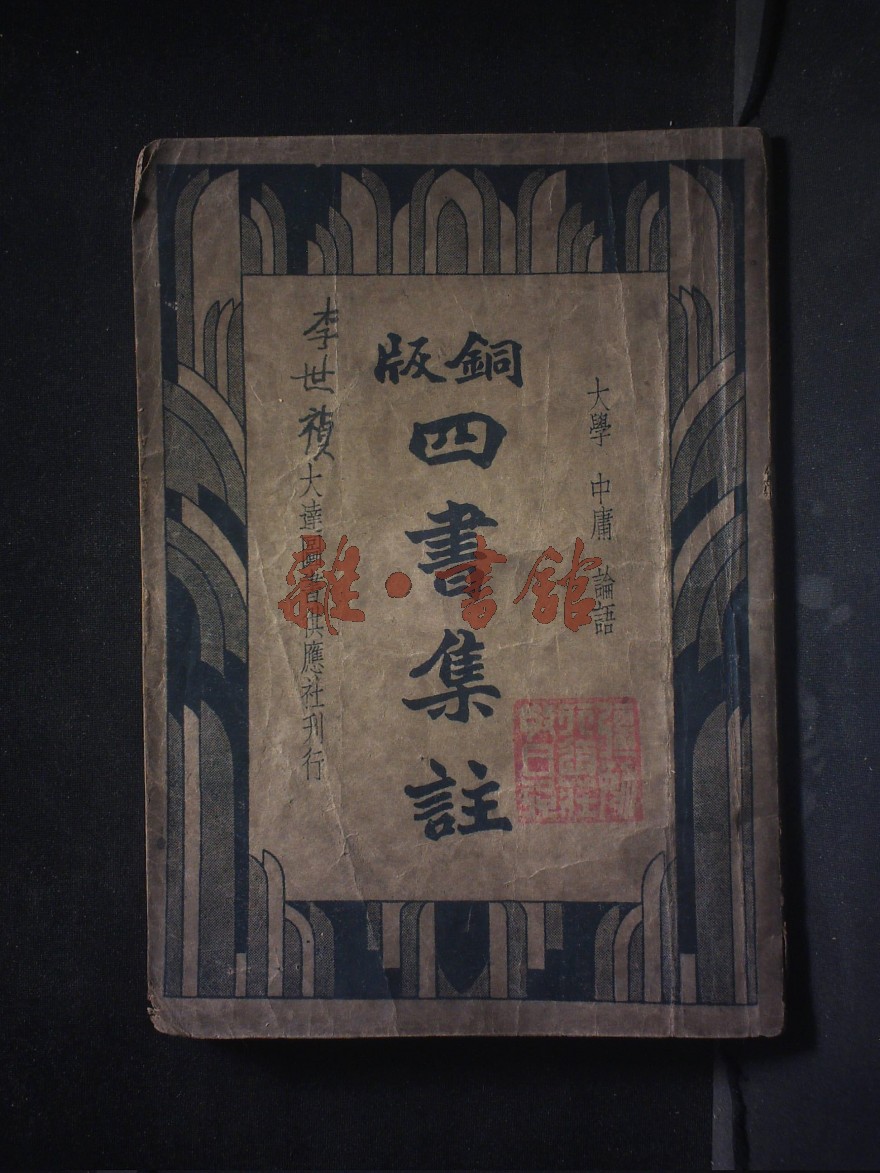 大學 中庸 論語
銅版
四書集註
李世禎
大達圖書供應社刊行
雜·書館